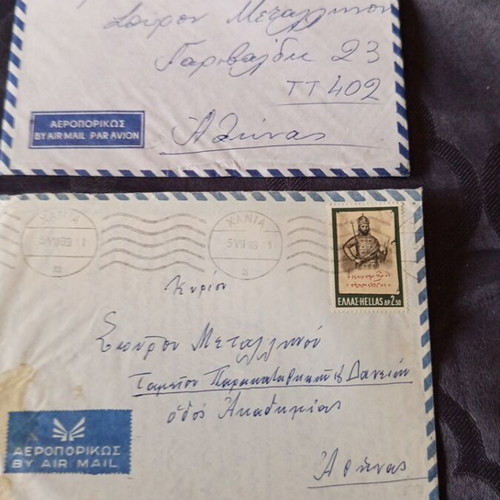 Σπύρον Μεταλληνον
Γαριβάλδη 23
ΤΤ 402
ΑΕΡΟΠΟΡΙΚΩΣ
BY AIR MAIL PAR AVION
Αθήνας
ΧΑΝΙΑ
ΕΛΛΑΣ-HELLAS ΔΡ 2.50
Κυρίον
Σπύρον Μεταλληνού
Ταμείον Παρακαταθηκών & Δανείων
οδός Ακαδημίας
ΑΕΡΟΠΟΡΙΚΩΣ
BY AIR MAIL
Αθήνας